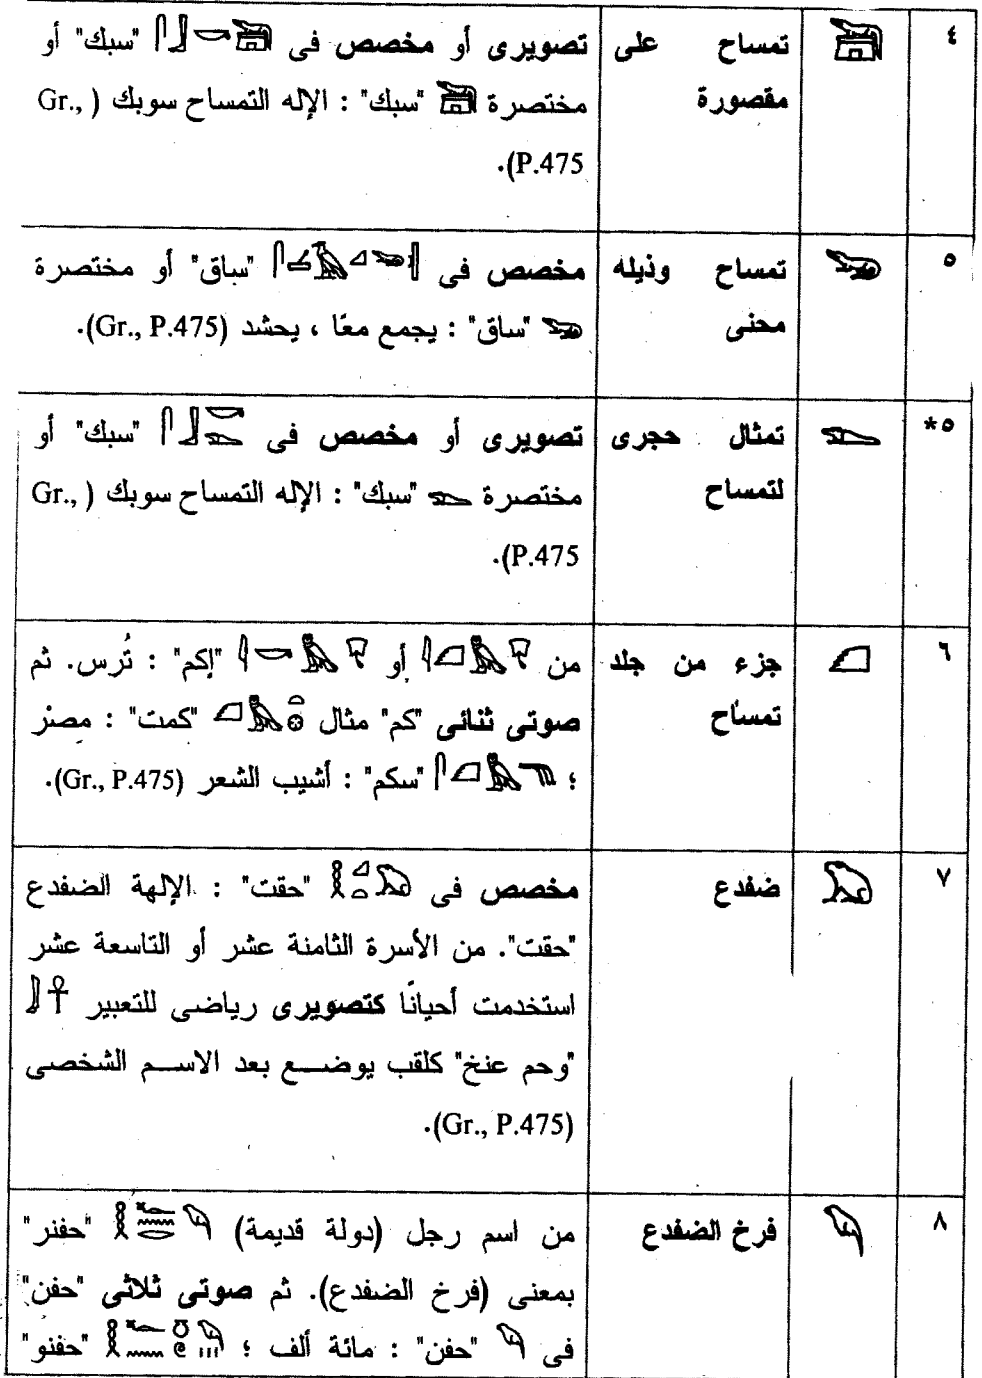 ٤ تمساح على تصويرى أو مخصص فى 𓆋𓎡𓃀𓋴 "سبك" أو
مقصورة مختصرة 𓆋 "سبك" : الإله التمساح سوبك (Gr.,
P.475).
٥ تمساح وذيله مخصص فى "ساق" أو مختصرة
محنى 𓆌 "ساق" : يجمع معًا ، يحشد (Gr., P.475).
٥* تمثال حجرى تصويرى أو مخصص فى "سبك" أو
لتمساح مختصرة "سبك" : الإله التمساح سوبك (Gr.,
P.475).
٦ جزء من جلد من أو "إكم" : تُرس. ثم
تمساح صوتى ثنائى "كم" مثال "كمت" : مصر
؛ "سكم" : أشيب الشعر (Gr., P.475).
٧ ضفدع مخصص فى "حقت" : الإلهة الضفدع
"حقت". من الأسرة الثامنة عشر أو التاسعة عشر
استخدمت أحيانًا كتصويرى رياضى للتعبير
"وحم عنخ" كلقب يوضع بعد الاسم الشخصى
(Gr., P.475).
٨ فرخ الضفدع من اسم رجل (دولة قديمة) "حفنر"
بمعنى (فرخ الضفدع). ثم صوتى ثلاثى "حفن"
فى 𓆐 "حفن" : مائة ألف ؛ "حفنو"